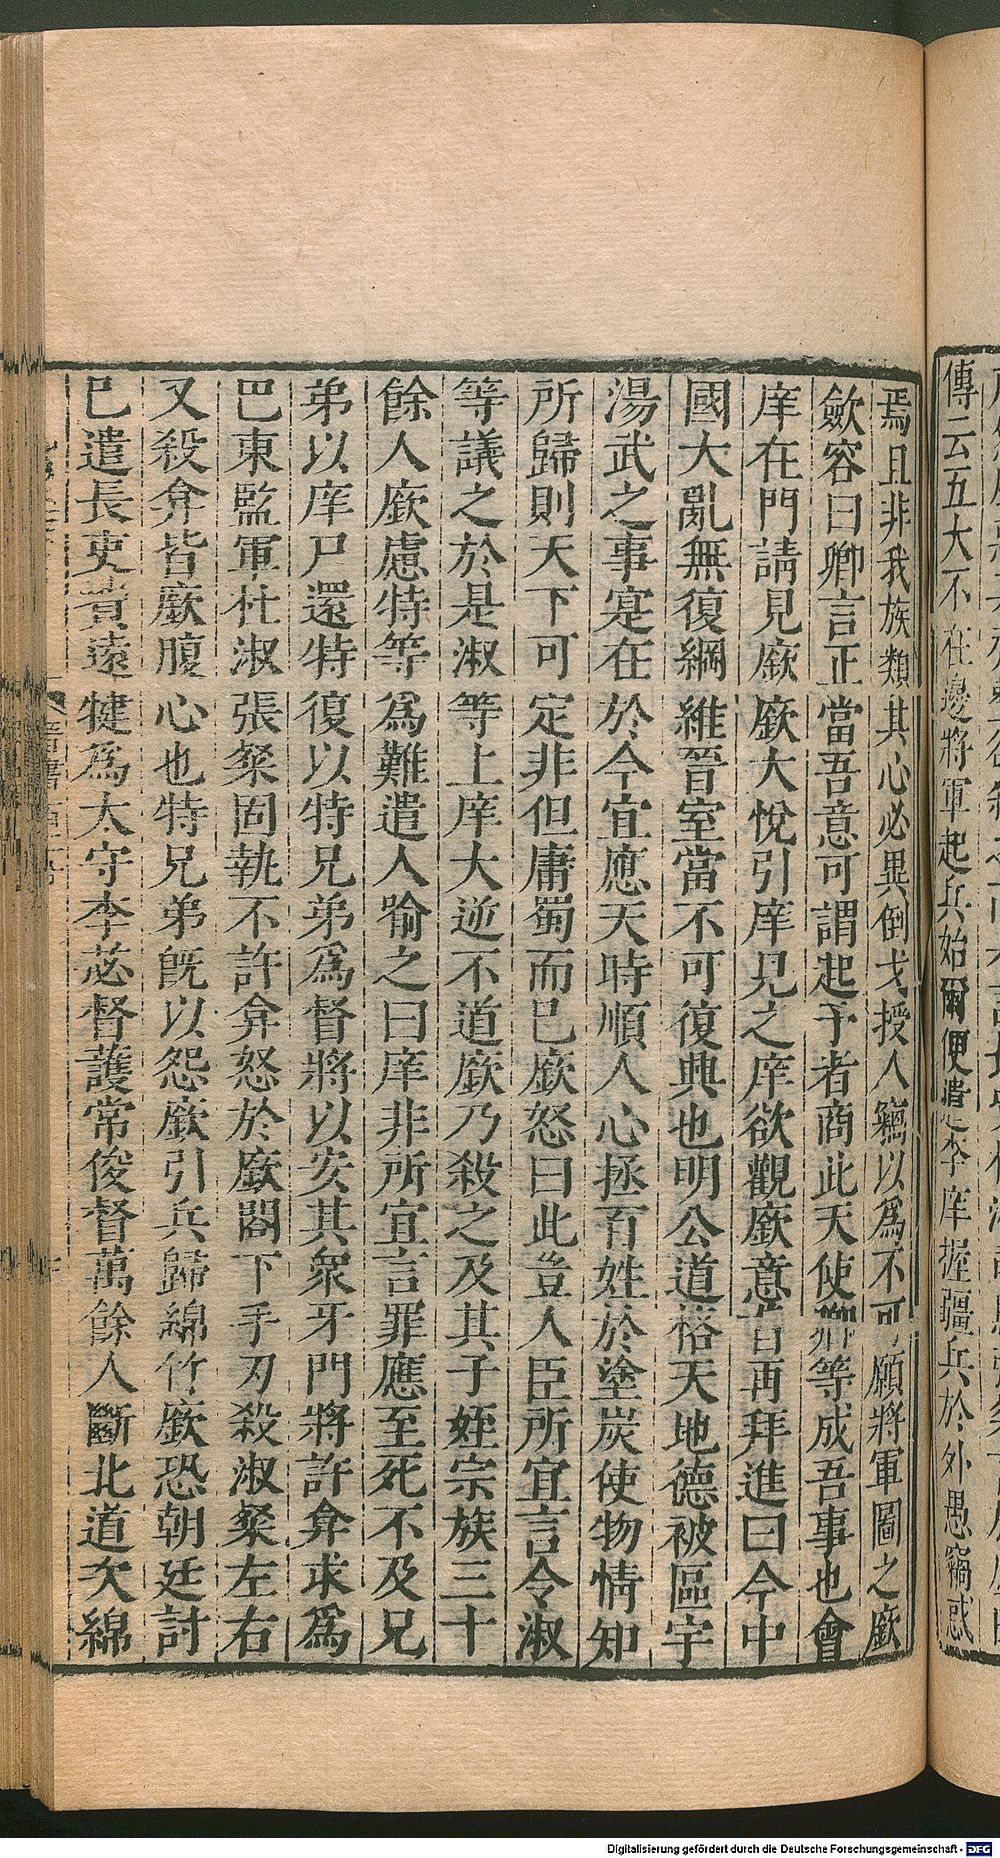 傳云五大不在邊將軍起兵始爾便遣李庠握彊兵於外愚竊惑
焉且非我族類其心必異倒戈授人竊以爲不可願將軍圖之廞
歛容曰卿言正當吾意可謂起予者商此天使卿等成吾事也會
庠在門請見廞廞大悅引庠見之庠欲觀廞意旨再拜進曰今中
國大亂無復綱維晉室當不可復興也明公道格天地德被區宇
湯武之事寔在於今宜應天時順人心拯百姓於塗炭使物情知
所歸則天下可定非但庸蜀而已廞怒曰此豈人臣所宜言令淑
等議之於是淑等上庠大逆不道廞乃殺之及其子姪宗族三十
餘人廞慮特等爲難遣人喻之曰庠非所宜言罪應至死不及兄
弟以庠尸還特復以特兄弟爲督將以安其衆牙門將許弇求爲
巴東監軍杜淑張粲固執不許弇怒於廞閤下手刃殺淑粲左右
又殺弇皆廞腹心也特兄弟旣以怨廞引兵歸綿竹廞恐朝廷討
已遣長吏費遠犍爲太守李苾督護常俊督萬餘人斷北道次綿
Digitalisierung gefördert durch die Deutsche Forschungsgemeinschaft - DFG